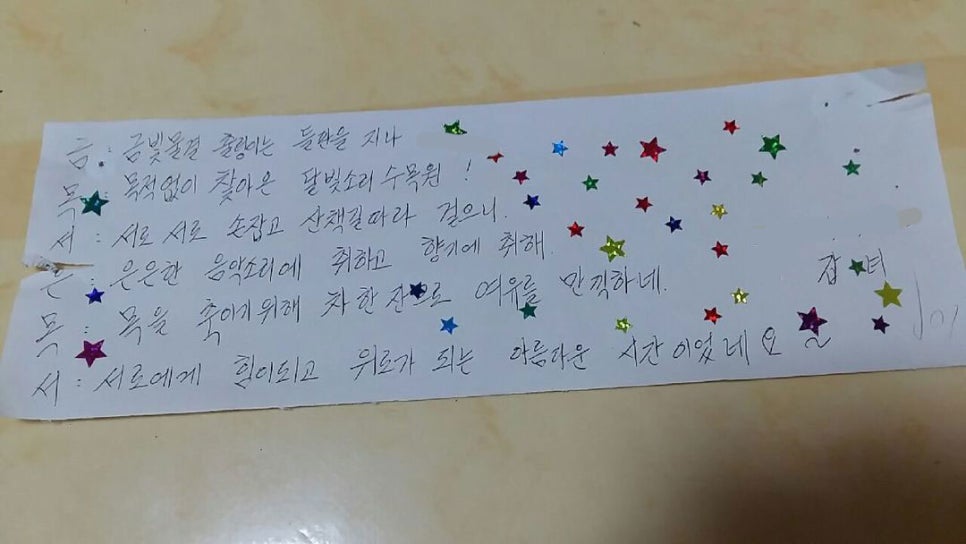 금 : 금빛물결 출렁이는 들판을 지나
목 : 목적없이 찾아온 달빛소리 수목원 !
서 : 서로 서로 손잡고 산책길따라 걸으니.
은 : 은은한 음악소리에 취하고 향기에 취해.
목 : 목을 축이기위해 차 한 잔으로 여유를 만끽하네.
서 : 서로에게 힘이되고 위로가 되는 아름다운 시간이었네요